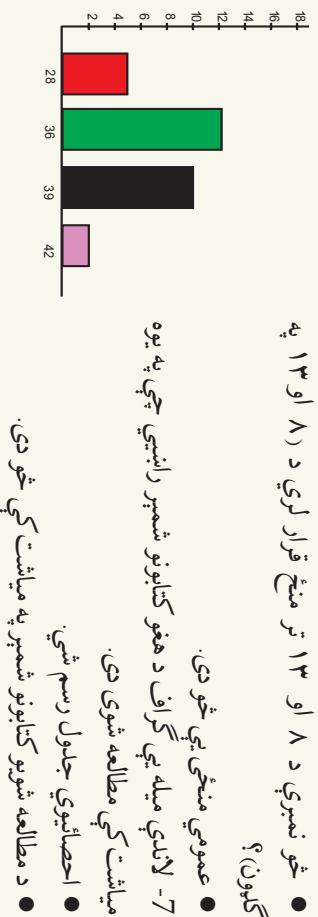 ● څو نمبرې د ۸ او ۱۳ تر منځ قرار لري د (۸ او ۱۳ په
ګډون)؟
● عمومي منځی يې څو دی.
7- لاندې ميله يي ګراف د هغو کتابونو شمېر راښيي چې په يوه
مياشت کې مطالعه شوی دی.
● احصائيوي جدول رسم شي.
● د مطالعه شويو کتابونو شمېر په مياشت کې څو دی.
18
16
14
12
10
8
6
4
2
28 36 39 42